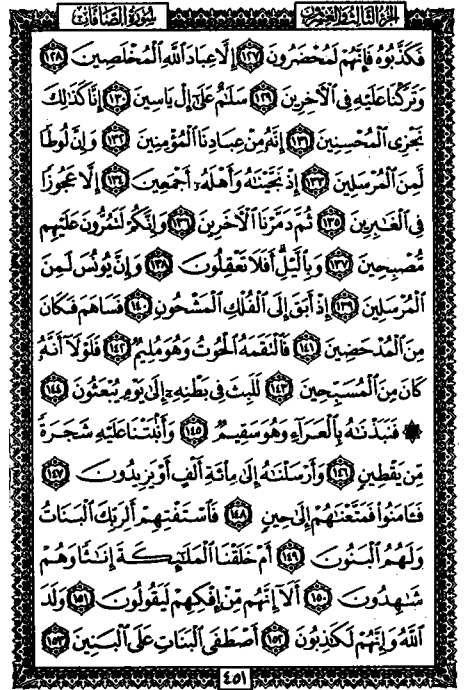 الجزء الثالث والعشرون سورة الصافات
فَكَذَّبُوهُ فَإِنَّهُمْ لَمُحْضَرُونَ ١٢٧ إِلَّا عِبَادَ اللَّهِ الْمُخْلَصِينَ ١٢٨
وَتَرَكْنَا عَلَيْهِ فِي الْآخِرِينَ ١٢٩ سَلَامٌ عَلَىٰ إِلْ يَاسِينَ ١٣٠ إِنَّا كَذَٰلِكَ
نَجْزِي الْمُحْسِنِينَ ١٣١ إِنَّهُ مِنْ عِبَادِنَا الْمُؤْمِنِينَ ١٣٢ وَإِنَّ لُوطًا
لَّمِنَ الْمُرْسَلِينَ ١٣٣ إِذْ نَجَّيْنَاهُ وَأَهْلَهُ أَجْمَعِينَ ١٣٤ إِلَّا عَجُوزًا
فِي الْغَابِرِينَ ١٣٥ ثُمَّ دَمَّرْنَا الْآخَرِينَ ١٣٦ وَإِنَّكُمْ لَتَمُرُّونَ عَلَيْهِم
مُّصْبِحِينَ ١٣٧ وَبِاللَّيْلِ أَفَلَا تَعْقِلُونَ ١٣٨ وَإِنَّ يُونُسَ لَمِنَ
الْمُرْسَلِينَ ١٣٩ إِذْ أَبَقَ إِلَى الْفُلْكِ الْمَشْحُونِ ١٤٠ فَسَاهَمَ فَكَانَ
مِنَ الْمُدْحَضِينَ ١٤١ فَالْتَقَمَهُ الْحُوتُ وَهُوَ مُلِيمٌ ١٤٢ فَلَوْلَا أَنَّهُ
كَانَ مِنَ الْمُسَبِّحِينَ ١٤٣ لَلَبِثَ فِي بَطْنِهِ إِلَىٰ يَوْمِ يُبْعَثُونَ ١٤٤
۞ فَنَبَذْنَاهُ بِالْعَرَاءِ وَهُوَ سَقِيمٌ ١٤٥ وَأَنبَتْنَا عَلَيْهِ شَجَرَةً
مِّن يَقْطِينٍ ١٤٦ وَأَرْسَلْنَاهُ إِلَىٰ مِائَةِ أَلْفٍ أَوْ يَزِيدُونَ ١٤٧
فَآمَنُوا فَمَتَّعْنَاهُمْ إِلَىٰ حِينٍ ١٤٨ فَاسْتَفْتِهِمْ أَلِرَبِّكَ الْبَنَاتُ
وَلَهُمُ الْبَنُونَ ١٤٩ أَمْ خَلَقْنَا الْمَلَائِكَةَ إِنَاثًا وَهُمْ
شَاهِدُونَ ١٥٠ أَلَا إِنَّهُم مِّنْ إِفْكِهِمْ لَيَقُولُونَ ١٥١ وَلَدَ
اللَّهُ وَإِنَّهُمْ لَكَاذِبُونَ ١٥٢ أَصْطَفَى الْبَنَاتِ عَلَى الْبَنِينَ ١٥٣
٤٥١